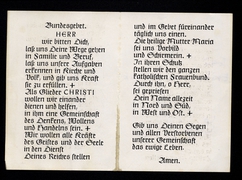 Bundesgebet.
HERR
wir bitten Dich,
laß uns Deine Wege gehen
in Familie und Beruf,
laß uns unsere Aufgaben
erkennen in Kirche und
Volk, und gib uns Kraft
sie zu erfüllen. +
Als Glieder CHRISTI
wollen wir einander
dienen und helfen,
in ihm eine Gemeinschaft
des Denkens, Wollens
und Handelns sein. +
Wir wollen alle Kräfte
des Geistes und der Seele
in den Dienst
Deines Reiches stellen
und im Gebet füreinander
täglich uns einen.
Die heilige Mutter Maria
sei uns Vorbild
und Schirmerin. +
In ihren Schutz
stellen wir den ganzen
katholischen Frauenbund.
Durch ihn, o Herr,
sei gepriesen
Dein Name allezeit
in Nord und Süd,
in West und Ost. +
Gib uns Deinen Segen
und allen Verstorbenen
unserer Gemeinschaft
das ewige Leben.
Amen.